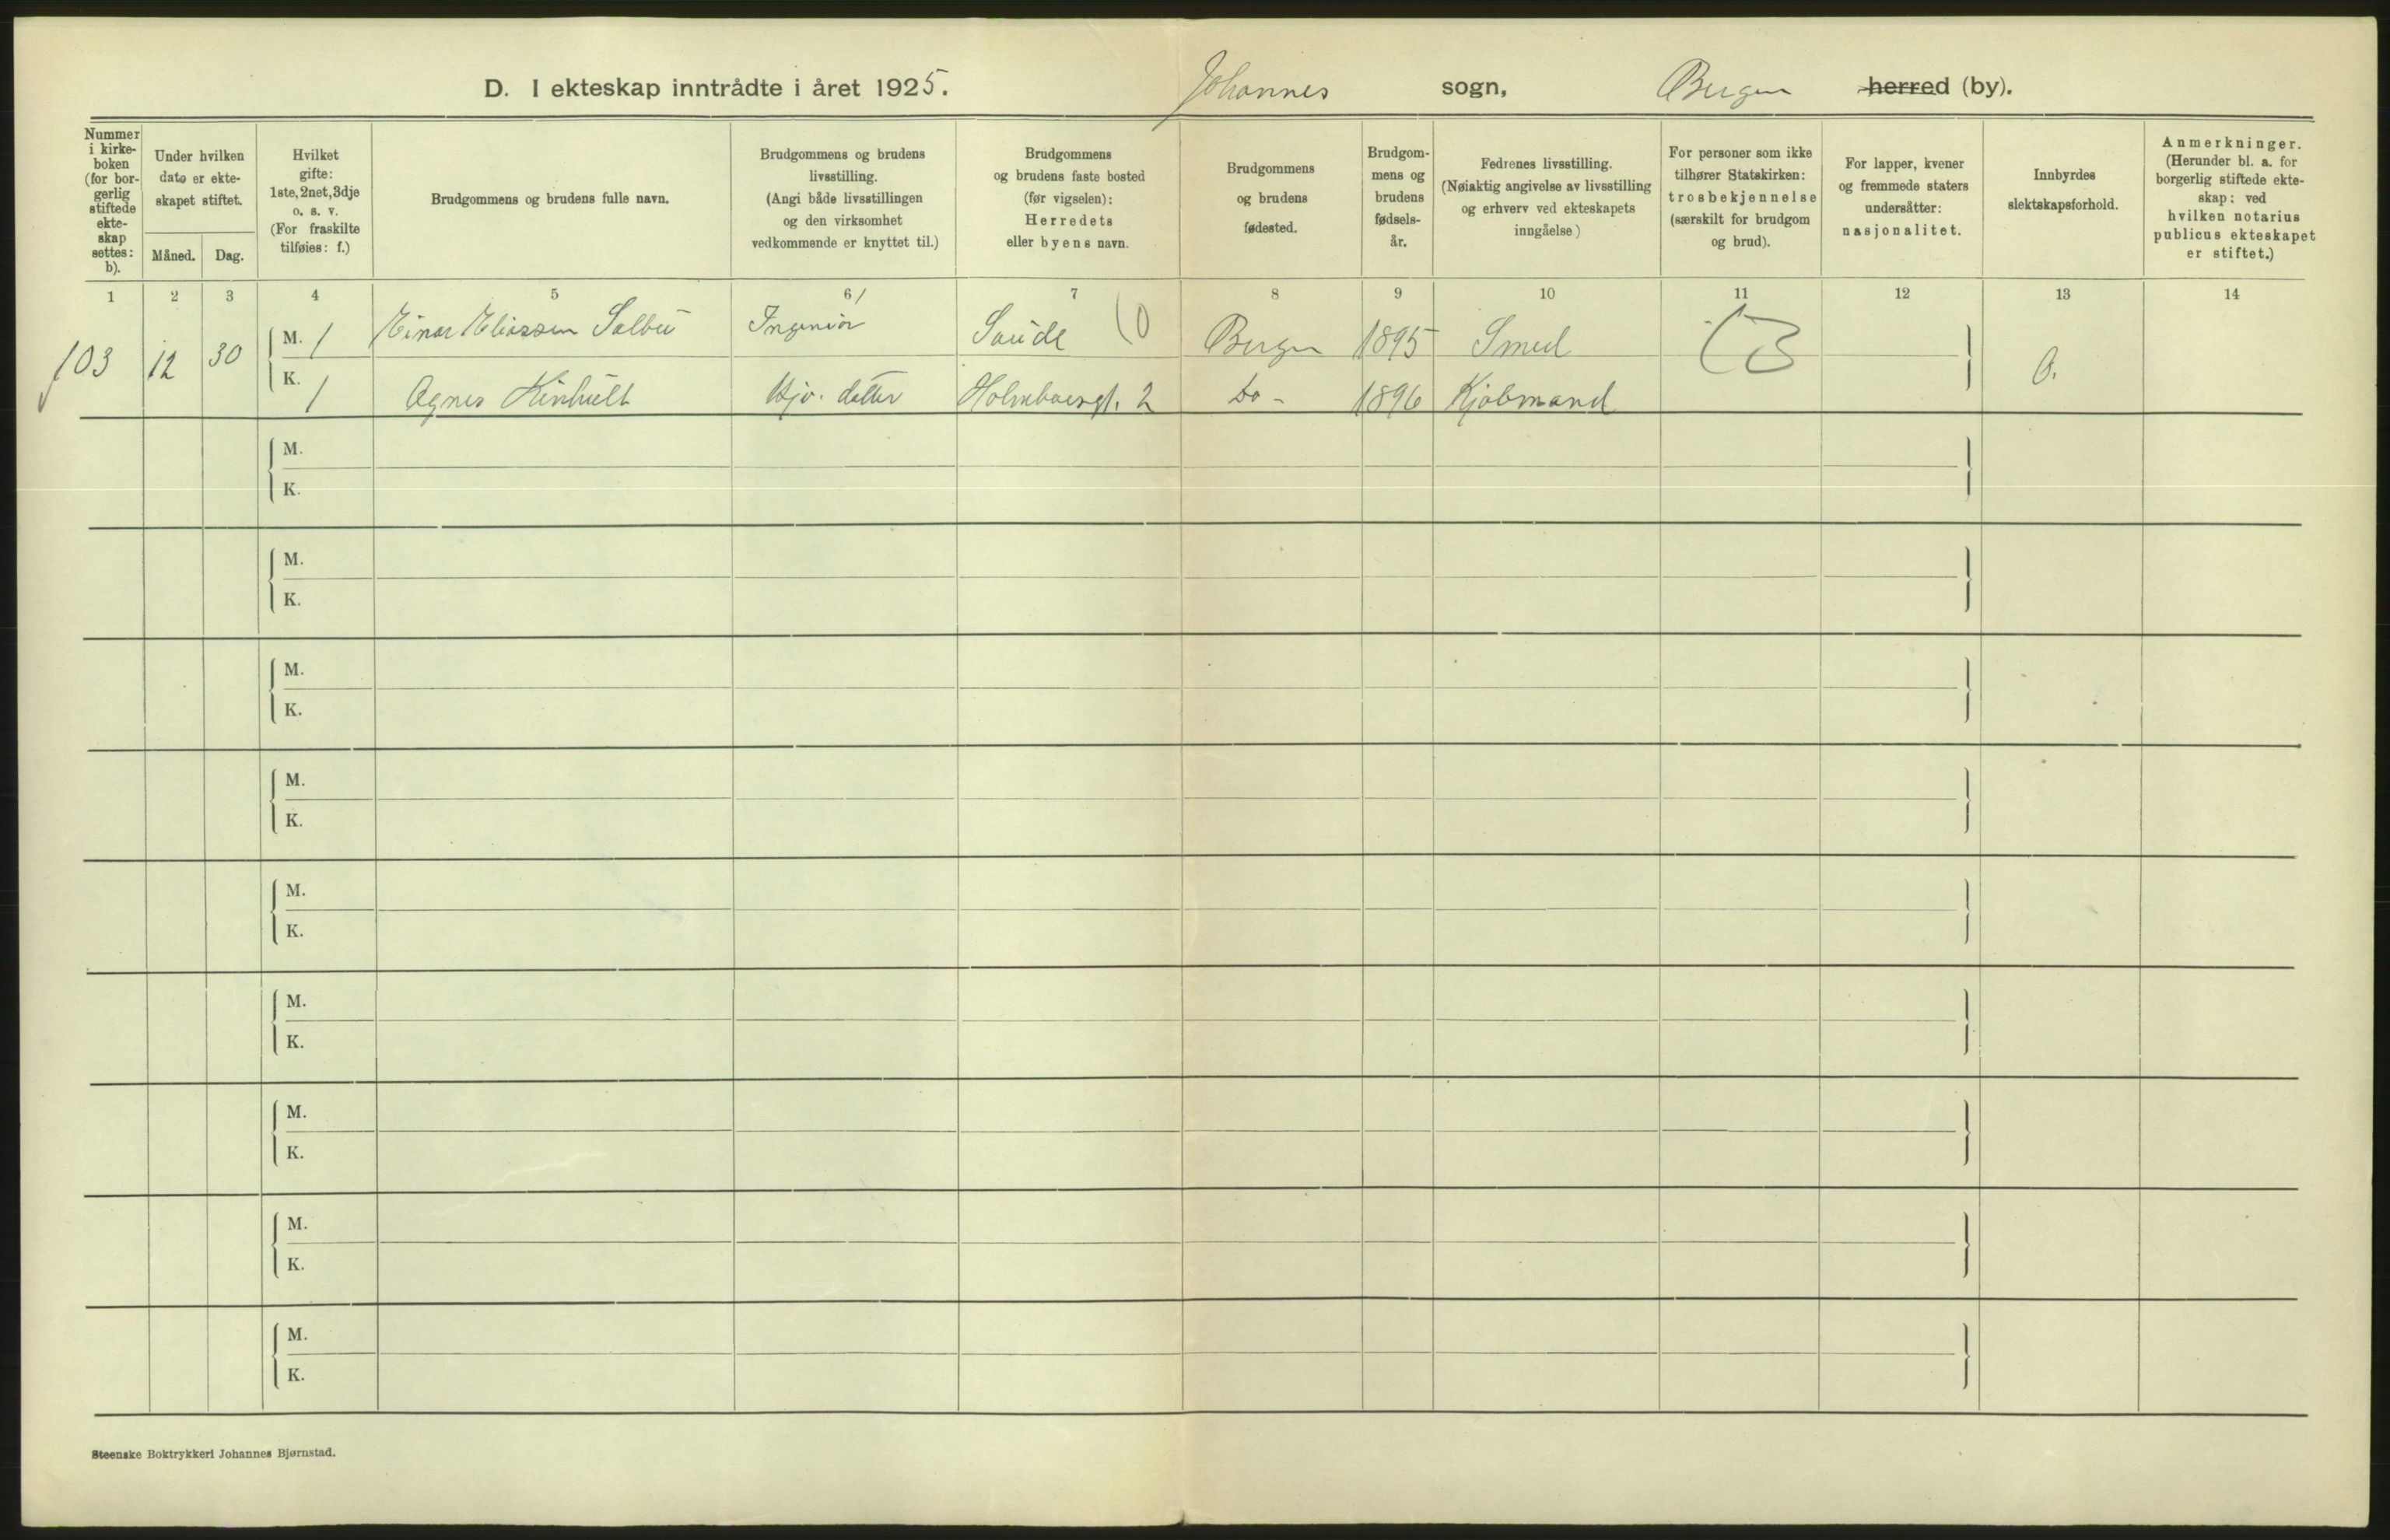 D. I ekteskap inntrådte i året 1925. Johannes sogn, Bergen herred (by).
Nummer i kirkeboken (for borgerlig stiftede ekteskap settes: b).
Under hvilken dato er ekteskapet stiftet.
Måned. Dag.
Hvilket gifte: 1ste, 2net, 3dje o. s. v. (For fraskilte tilføies: f.)
Brudgommens og brudens fulle navn.
Brudgommens og brudens livsstilling. (Angi både livsstillingen og den virksomhet vedkommende er knyttet til.)
Brudgommens og brudens faste bosted (før vigselen): Herredets eller byens navn.
Brudgommens og brudens fødested.
Brudgommens og brudens fødselsår.
Fedrenes livsstilling. (Nøiaktig angivelse av livsstilling og erhverv ved ekteskapets inngåelse)
For personer som ikke tilhører Statskirken: trosbekjennelse (særskilt for brudgom og brud).
For lapper, kvener og fremmede staters undersåtter: nasjonalitet.
Innbyrdes slektskapsforhold.
Anmerkninger. (Herunder bl. a. for borgerlig stiftede ekteskap: ved hvilken notarius publicus ekteskapet er stiftet.)
1 2 3 4 5 6 7 8 9 10 11 12 13 14
103 12 30 M. 1 Einar Eliassen Salbu Ingeniør Saude Bergen 1895 Smed 0.
K. 1 Agnes Hjv. datter Holmboesgt. 2 Do - 1896 Kjøbmand
M.
K.
M.
K.
M.
K.
M.
K.
M.
K.
M.
K.
M.
K.
M.
K.
M.
K.
Steenske Boktrykkeri Johannes Bjørnstad.